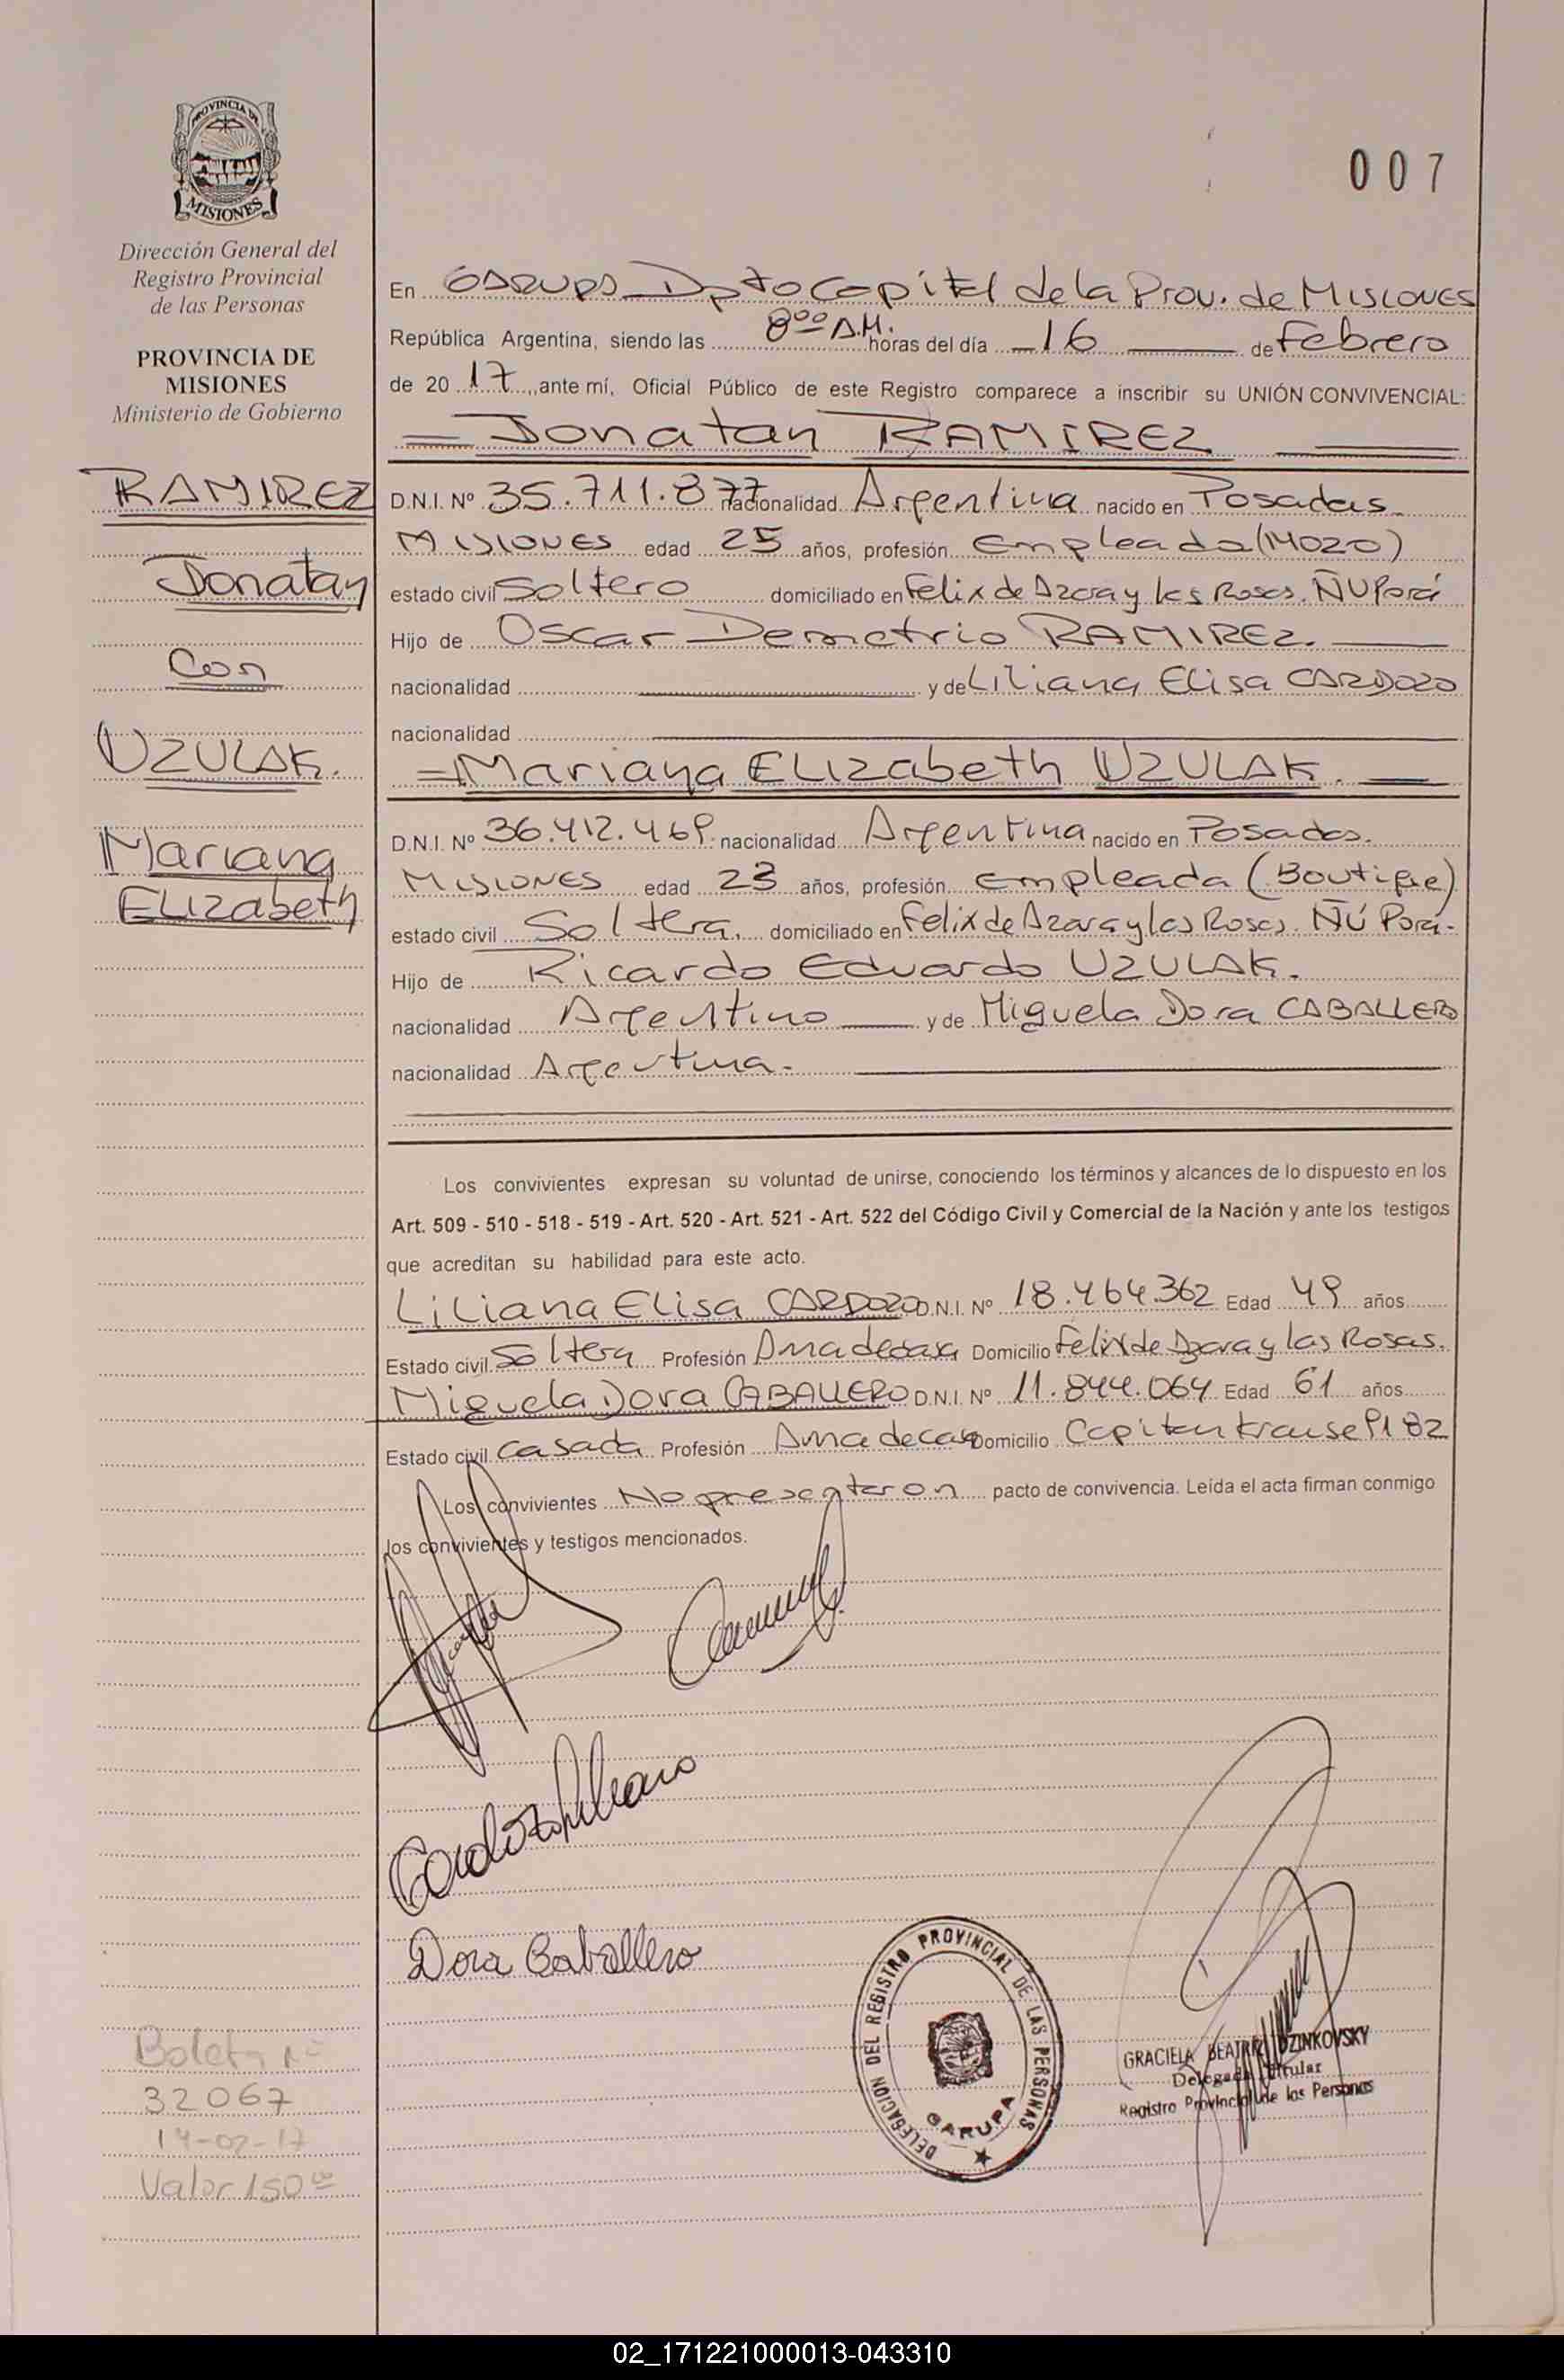 PROVINCIA DE
MISIONES
Dirección General del
Registro Provincial
de las Personas
PROVINCIA DE
MISIONES
Ministerio de Gobierno
RAMIREZ
Jonatan
Con
UZULAK.
Mariana
Elizabeth
Boleta Nº
32067
14-02-17
Valor 150 ºº
007
En GARUPA Dpto Capital de la Prov. de Misiones
República Argentina, siendo las 8 ºº A.M. horas del día 16 de Febrero
de 20 17, ante mí, Oficial Público de este Registro comparece a inscribir su UNIÓN CONVIVENCIAL:
Jonatan RAMIREZ
D.N.I. Nº 35.711.877 nacionalidad Argentina nacido en Posadas.
Misiones edad 25 años, profesión Empleado (Mozo)
estado civil Soltero domiciliado en Felix de Azara y las Rosas. Ñu Porá
Hijo de Oscar Demetrio RAMIREZ.
nacionalidad y de Liliana Elisa CARDOZO
nacionalidad
Mariana Elizabeth UZULAK.
D.N.I. Nº 36.412.469. nacionalidad Argentina nacido en Posadas.
Misiones edad 23 años, profesión Empleada (Boutique)
estado civil Soltera. domiciliado en Felix de Azara y las Rosas. Ñú Porá.
Hijo de Ricardo Eduardo UZULAK.
nacionalidad Argentino y de Miguela Dora CABALLERO
nacionalidad Argentina.
Los convivientes expresan su voluntad de unirse, conociendo los términos y alcances de lo dispuesto en los
Art. 509 - 510 - 518 - 519 - Art. 520 - Art. 521 - Art. 522 del Código Civil y Comercial de la Nación y ante los testigos
que acreditan su habilidad para este acto.
Liliana Elisa CARDOZO D.N.I. Nº 18.464.362 Edad 49 años
Estado civil Soltera Profesión Ama de casa Domicilio Felix de Azara y las Rosas.
Miguela Dora CABALLERO D.N.I. Nº 11.844.064 Edad 61 años
Estado civil Casada Profesión Ama de casa Domicilio Capitan Krause 9182
Los convivientes No presentaron pacto de convivencia. Leída el acta firman conmigo
los convivientes y testigos mencionados.
Cardozo Liliana
Dora Caballero
DELEGACION DEL REGISTRO PROVINCIAL DE LAS PERSONAS
GARUPA
GRACIELA BEATRIZ DZINKOVSKY
Delegada Titular
Registro Provincial de las Personas
02_171221000013-043310